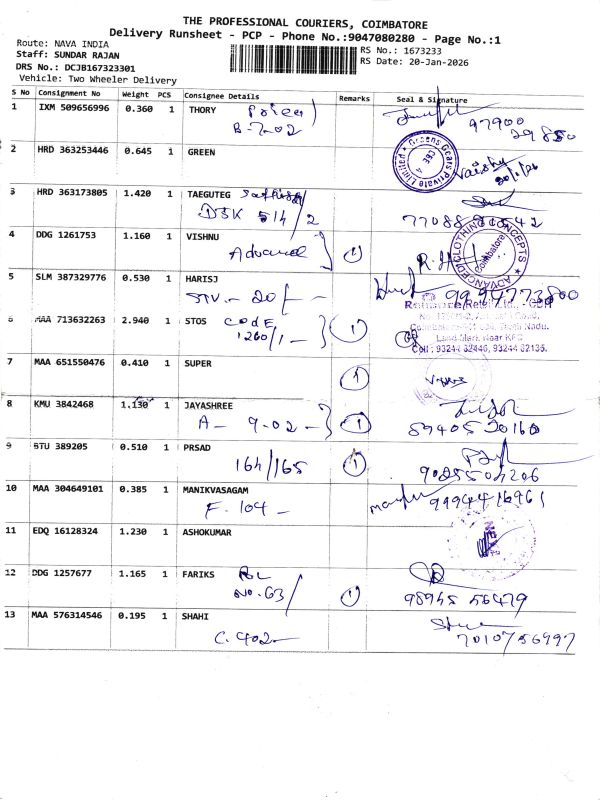 THE PROFESSIONAL COURIERS, COIMBATORE
Delivery Runsheet - PCP - Phone No.:9047080280 - Page No.:1
Route: NAVA INDIA
Staff: SUNDAR RAJAN
DRS No.: DCJB167323301
Vehicle: Two Wheeler Delivery
RS No.: 1673233
RS Date: 20-Jan-2026
S No Consignment No Weight PCS Consignee Details Remarks Seal & Signature
1 IXM 509656996 0.360 1 THORY
B-7-02
97900
29850
2 HRD 363253446 0.645 1 GREEN
Greens Gears Private Limited
20/1/26
3 HRD 363173805 1.420 1 TAEGUTEG
DSK 514/2
4 DDG 1261753 1.160 1 VISHNU
Advanced 1
ADVANCED CLOTHING CONCEPTS
Coimbatore
5 SLM 387329776 0.530 1 HARISJ
STV - 20/-
6 MAA 713632263 2.940 1 STOS CODE
1260/1- 1
Land Mark Near KFC
Cell : 93244 32446, 93244 32135.
7 MAA 651550476 0.410 1 SUPER
1
8 KMU 3842468 1.130 1 JAYASHREE
A - 9-02 - 1
89405 20160
9 BTU 389205 0.510 1 PRSAD
164/165 1
10 MAA 304649101 0.385 1 MANIKVASAGAM
F. 104 -
9994416961
11 EDQ 16128324 1.230 1 ASHOKUMAR
12 DDG 1257677 1.165 1 FARIKS
No. 63/ 1
98945 56479
13 MAA 576314546 0.195 1 SHAHI
C. 402-
7010756997